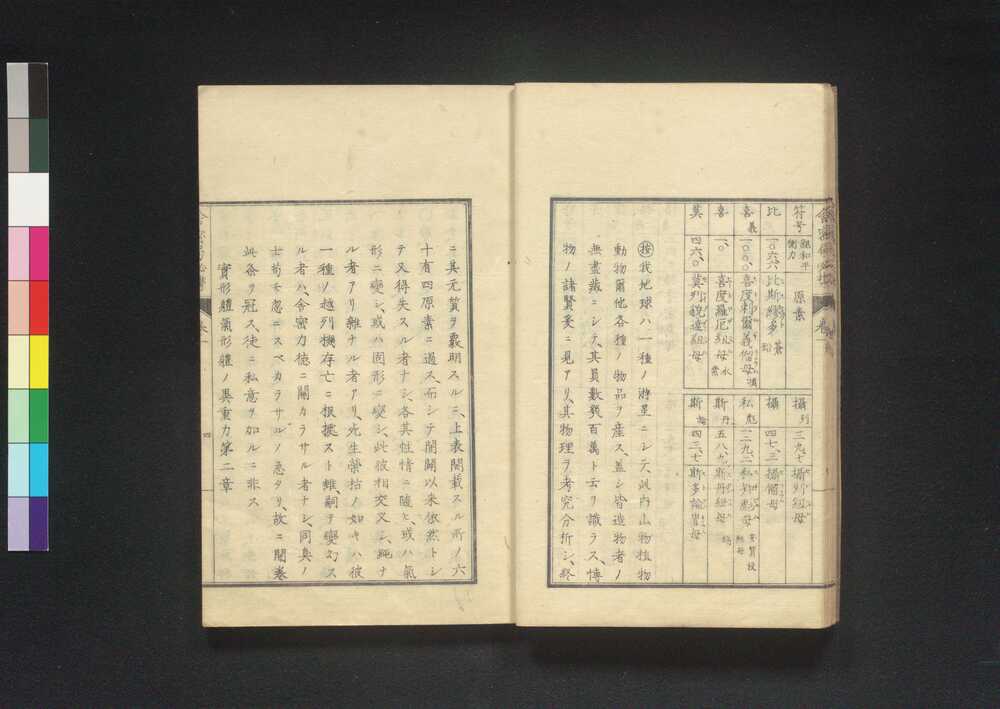 符号
飽和平衡力
原素
比
一〇六六
比斯繆多
蒼鉛
喜義
一〇〇〇
喜度剌爾義傴母
喜
一〇
喜度羅厄紐母
水素
莫
四六〇
莫列貌達紐母
攝列
三九七
攝列紐母
攝
四七三
攝僃母
私
一二九
斯丹
五八九
斯丹紐母
錫
斯
四三七
按我地球ハ一種ノ游星ニシテ、此内山物植物
動物爾他各種ノ物品ヲ産ス、蓋シ皆造物者ノ
無盡藏ニシテ、其員數數百萬ト云リ識ラス、博
物ノ諸賢爰ニ見アリ、其物理ヲ考究分折シ、終
ニ其元質ヲ覈明スルニ、上表開載スル所ノ六
十有四原素ニ過ス、而シテ開闢以来依然トシ
テ又得失スル者ナシ、各其性情ニ随ヒ、或ハ氣
形ニ變シ、或ハ固形ニ變シ、此彼相交叉シ、純ナ
ル者アリ雜ナル者アリ、死生榮枯ノ如キハ彼
一種ノ越列機存亡ニ根據スト雖、嗣テ變幻ス
ル者ハ舎密力徳ニ關カラサル者ナシ、同臭ノ
士苟モ忽ニスベカラサルノ意タリ、故ニ開巻
此条ヲ冠ス、徒ニ私意ヲ加ルニ非ス
實形體氣形體ノ異重力第二章
四